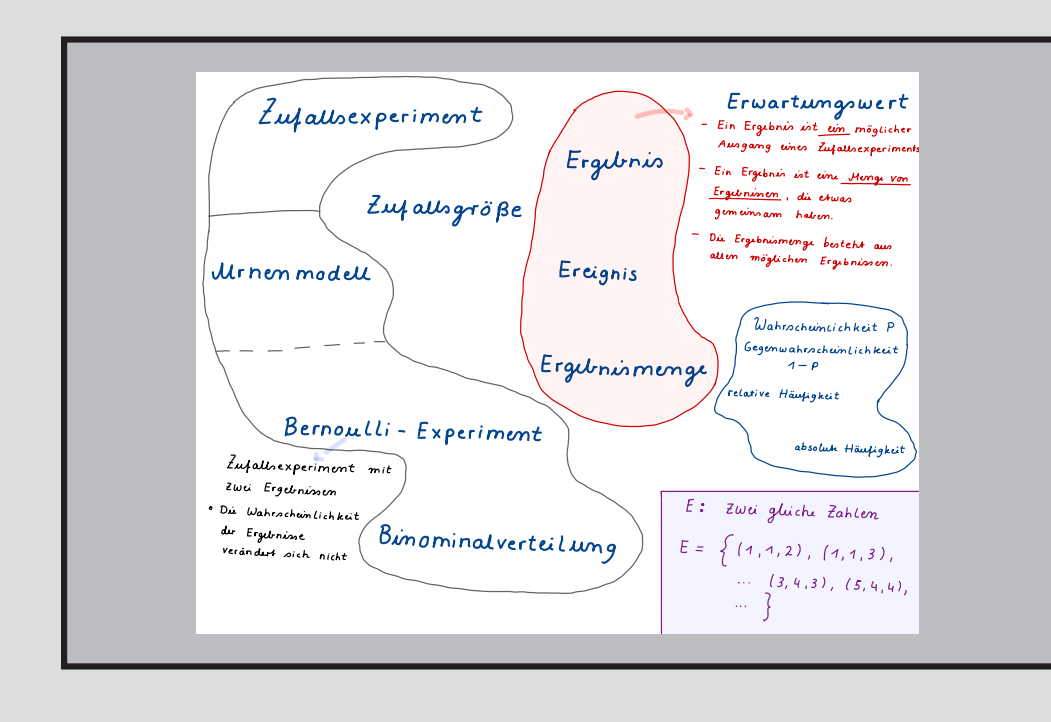 Zufallsexperiment
Zufallsgröße
Urnenmodell
Bernoulli - Experiment
Zufallsexperiment mit
zwei Ergebnissen
• Die Wahrscheinlichkeit
der Ergebnisse
verändert sich nicht
Binominalverteilung
Ergebnis
Ereignis
Ergebnismenge
Erwartungswert
- Ein Ergebnis ist ein möglicher
Ausgang eines Zufallsexperiments
- Ein Ergebnis ist eine Menge von
Ergebnissen, die etwas
gemeinsam haben.
- Die Ergebnismenge besteht aus
allen möglichen Ergebnissen.
Wahrscheinlichkeit P
Gegenwahrscheinlichkeit
1-P
relative Häufigkeit
absolute Häufigkeit
E: zwei gleiche Zahlen
E = { (1,1,2), (1,1,3),
... (3,4,3), (5,4,4),
... }